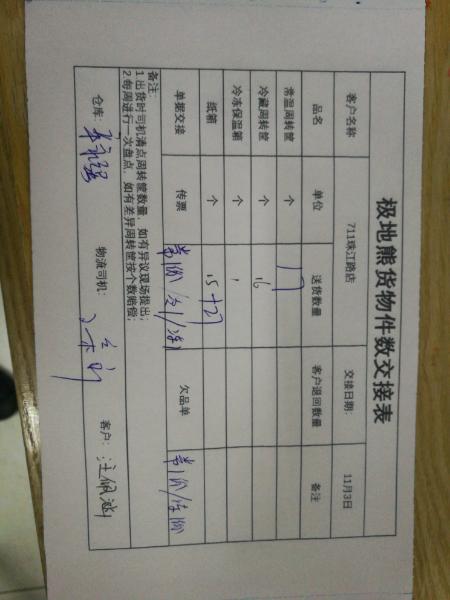 极地熊货物件数交接表
客户名称 711珠江路店 交接日期: 11月3日
品名 单位 送货数量 客户退回数量 备注
常温周转筐 个 17
冷藏周转筐 个 16
冷冻保温箱 个 1
纸箱 个 15+27
单据交接 传票 欠品单
备注:
1.出货时司机清点周转筐数量,如有异议现场提出;
2.每周进行一次盘点,如有差异周转筐按个数赔偿;
仓库: 物流司机: 客户: